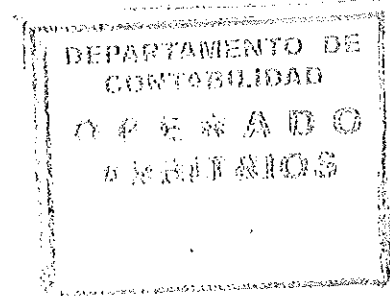 DEPARTAMENTO DE
CONTABILIDAD
OPERADO